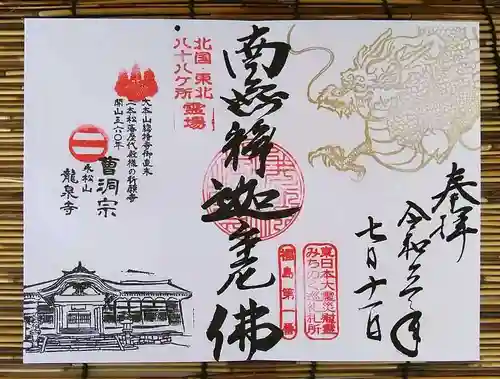 奉拝
令和三年
七月十一日
南無釋迦牟尼佛
東日本大震災慰霊
みちのく巡礼札所
福島第一番
北国・東北
八十八ヶ所霊場
大本山總持寺御直末
二本松藩歴代殿様の祈願寺
開山三六〇年
曹洞宗
永松山
龍泉寺